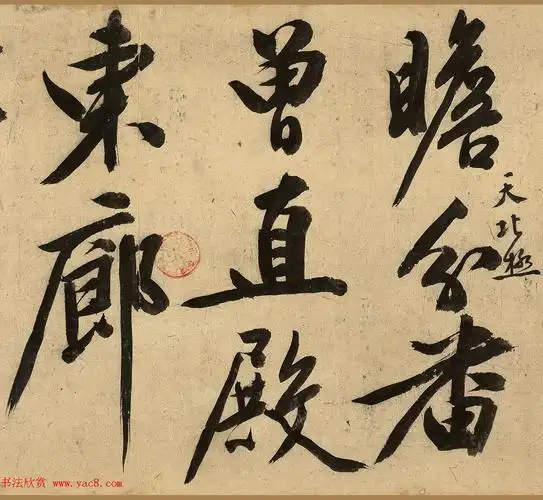 瞻分番
天北極
曾直殿
東廊
书法欣赏 www.yac8.com